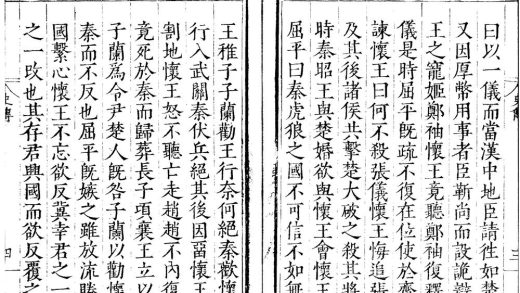 曰以一儀而當漢中地臣請往如楚
又因厚幣用事者臣靳尚而設詭辯
王之寵姬鄭袖懷王竟聽鄭袖復釋
儀是時屈平既疏不復在位使於齊
諫懷王曰何不殺張儀懷王悔追張
及其後諸侯共擊楚大破之殺其將
時秦昭王與楚婚欲與懷王會懷王
屈平曰秦虎狼之國不可信不如無
三
王稚子子蘭勸王行奈何絕秦歡懷
行入武關秦伏兵絕其後因留懷王
割地懷王怒不聽亡走趙趙不內復
竟死於秦而歸葬長子頃襄王立以
子蘭為令尹楚人既咎子蘭以勸懷
秦而不反也屈平既嫉之雖放流睠
國繫心懷王不忘欲反冀幸君之一
之一改也其存君興國而欲反覆之
四